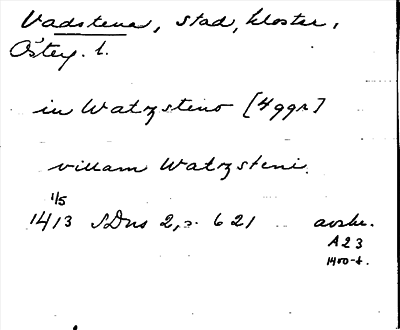 Vadstena, stad, kloster,
Östg. l.
in Watzsteno [4 ggr]
villam Watzsteni.
1/5
1413 SDns 2, s. 621 avskr.
A 23
1400-t.